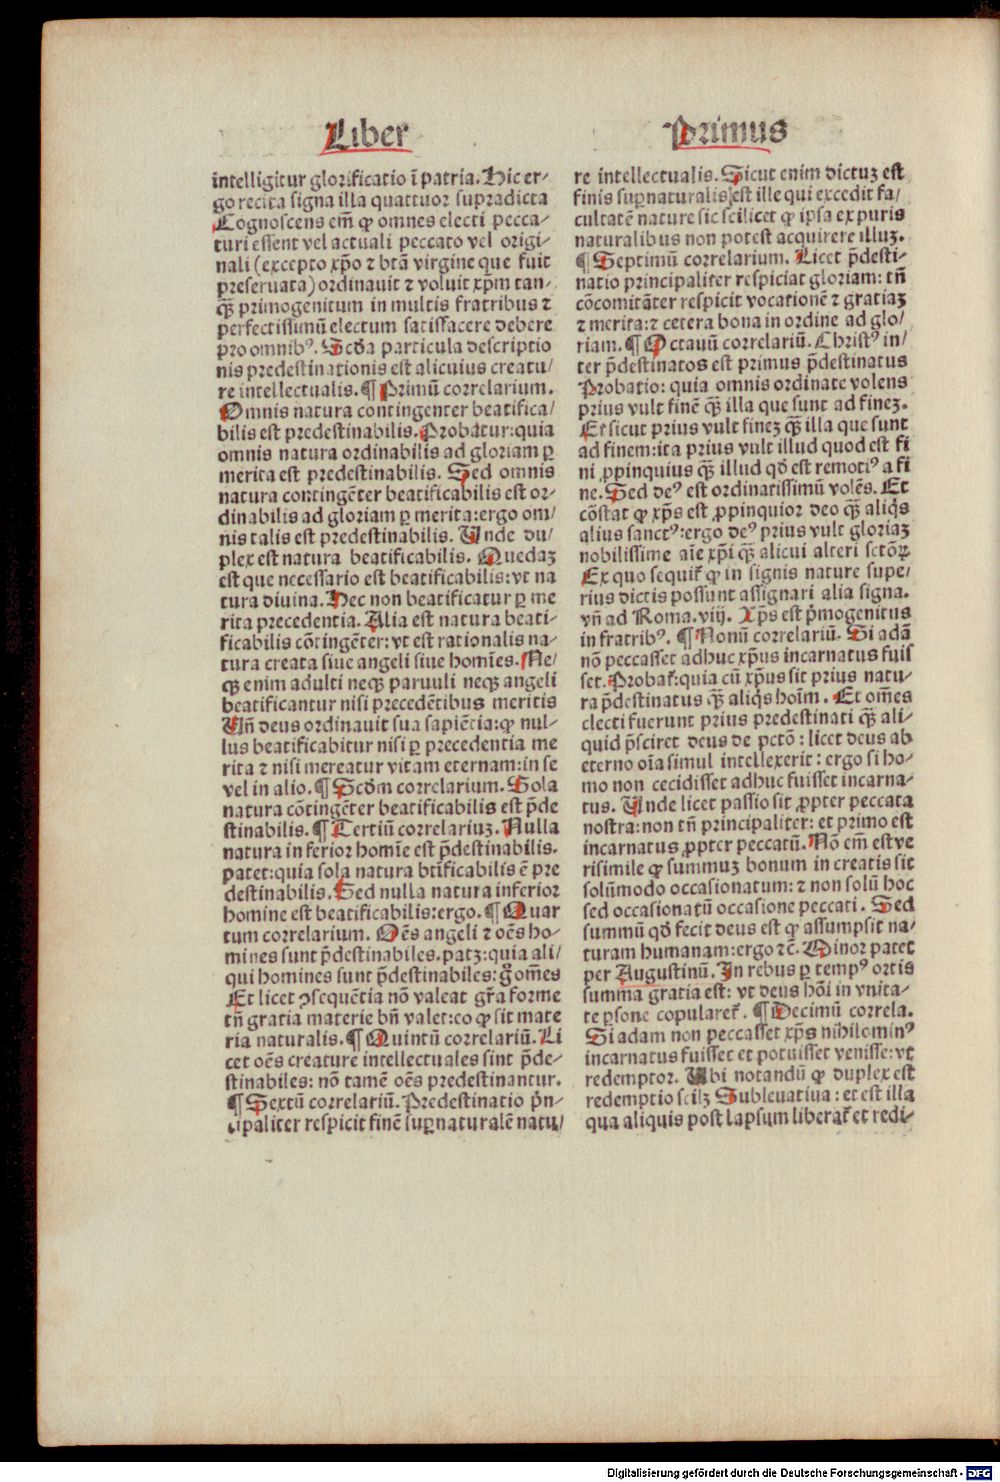 Liber Primus
intelligitur glorificatio ī patria. Hic er-
go recita signa illa quattuor supradicta
Cognoscens em̄ ꝙ omnes electi pecca-
turi essent vel actuali peccato vel origi-
nali (excepto xp̄o ⁊ btā virgine que fuit
preseruata) ordinauit ⁊ voluit xp̄m tan-
qȝ̄ primogenitum in multis fratribus ⁊
perfectissimū electum satisfacere debere
pro omnibꝰ. Scd̄a particula descriptio
nis predestinationis est alicuius creatu/
re intellectualis. ¶ Primū correlarium.
Omnis natura contingenter beatifica/
bilis est predestinabilis. Probatur: quia
omnis natura ordinabilis ad gloriam ꝑ
merita est predestinabilis. Sed omnis
natura contingēter beatificabilis est or-
dinabilis ad gloriam ꝑ merita: ergo om/
nis talis est predestinabilis. Unde du/
plex est natura beatificabilis. Quedaꝫ
est que necessario est beatificabilis: vt na
tura diuina. Hec non beatificatur ꝑ me
rita precedentia. Alia est natura beati-
ficabilis cōtingēter: vt est rationalis na-
tura creata siue angeli siue homīes. Ne/
qꝫ enim adulti neqꝫ paruuli neqꝫ angeli
beatificantur nisi precedētibus meritis
Un̄ deus ordinauit sua sapiētia: ꝙ nul-
lus beatificabitur nisi ꝑ precedentia me
rita ⁊ nisi mereatur vitam eternam: in se
vel in alio. ¶ Scd̄m correlarium. Sola
natura cōtingēter beatificabilis est p̄de
stinabilis. ¶ Tertiū correlariuꝫ. Nulla
natura inferior homīe est p̄destinabilis.
patet: quia sola natura btīficabilis ē pre
destinabilis. Sed nulla natura inferior
homine est beatificabilis: ergo. ¶ Quar
tum correlarium. Oēs angeli ⁊ oēs ho-
mines sunt p̄destinabiles. patꝫ: quia ali/
qui homines sunt p̄destinabiles: gͦ om̄es
Et licet ꝯsequētia nō valeat gr̄a forme
tn̄ gratia materie bn̄ valet: eo ꝙ sit mate
ria naturalis. ¶ Quintū correlariū. Li
cet oēs creature intellectuales sint p̄de-
stinabiles: nō tamē oēs predestinantur.
¶ Sextū correlariū. Predestinatio p̄n-
cipaliter respicit finē suꝑnaturalē natu/
re intellectualis. Sicut enim dictuꝫ est
finis suꝑnaturalis est ille qui excedit fa/
cultatē nature sic scilicet ꝙ ipsa ex puris
naturalibus non potest acquirere illuꝫ.
¶ Septimū correlarium. Licet p̄desti-
natio principaliter respiciat gloriam: tn̄
cōcomitāter respicit vocationē ⁊ gratiaꝫ
⁊ merita: ⁊ cetera bona in ordine ad glo/
riam. ¶ Octauū correlariū. Christꝰ in/
ter p̄destinatos est primus p̄destinatus
Probatio: quia omnis ordinate volens
prius vult finē qȝ̄ illa que sunt ad fineꝫ.
Et sicut prius vult fineꝫ qȝ̄ illa que sunt
ad finem: ita prius vult illud quod est fi
ni ꝓpinquius qȝ̄ illud qd̄ est remotiꝰ a fi
ne. Sed deꝰ est ordinatissimū volēs. Et
cōstat ꝙ xp̄s est ꝓpinquior deo qȝ̄ aliq̄s
alius sanctꝰ: ergo deꝰ prius vult gloriaꝫ
nobilissime aīe xp̄i qȝ̄ alicui alteri sctōꝝ.
Ex quo sequit᷑ ꝙ in signis nature supe/
rius dictis possunt assignari alia signa.
vn̄ ad Roma. viij. Xp̄s est p̄mogenitus
in fratribꝰ. ¶ Nonū correlariū. Si adā
nō peccasset adhuc xp̄us incarnatus fuis
set. Probat᷑: quia cū xp̄us sit prius natu/
ra p̄destinatus qȝ̄ aliq̄s hoīm. Et om̄es
electi fuerunt prius predestinati qȝ̄ ali-
quid p̄sciret deus de pctō: licet deus ab
eterno oīa simul intellexerit: ergo si ho-
mo non cecidisset adhuc fuisset incarna-
tus. Unde licet passio sit ꝓpter peccata
nostra: non tn̄ principaliter: et primo est
incarnatus ꝓpter peccatū. Nō em̄ est ve
risimile ꝙ summuꝫ bonum in creatis sit
solūmodo occasionatum: ⁊ non solū hoc
sed occasionatū occasione peccati. Sed
summū qd̄ fecit deus est ꝙ assumpsit na-
turam humanam: ergo ⁊c̄. Minor patet
per Augustinū. In rebus ꝑ tempꝰ ortis
summa gratia est: vt deus hōi in vnita-
te ꝑsone copularet᷑. ¶ Decimū correla.
Si adam non peccasset xp̄s nihilominꝰ
incarnatus fuisset et potuisset venisse: vt
redemptor. Ubi notandū ꝙ duplex est
redemptio scilꝫ Subleuatiua: et est illa
qua aliquis post lapsum liberat᷑ et redi-
Digitalisierung gefördert durch die Deutsche Forschungsgemeinschaft - DFG